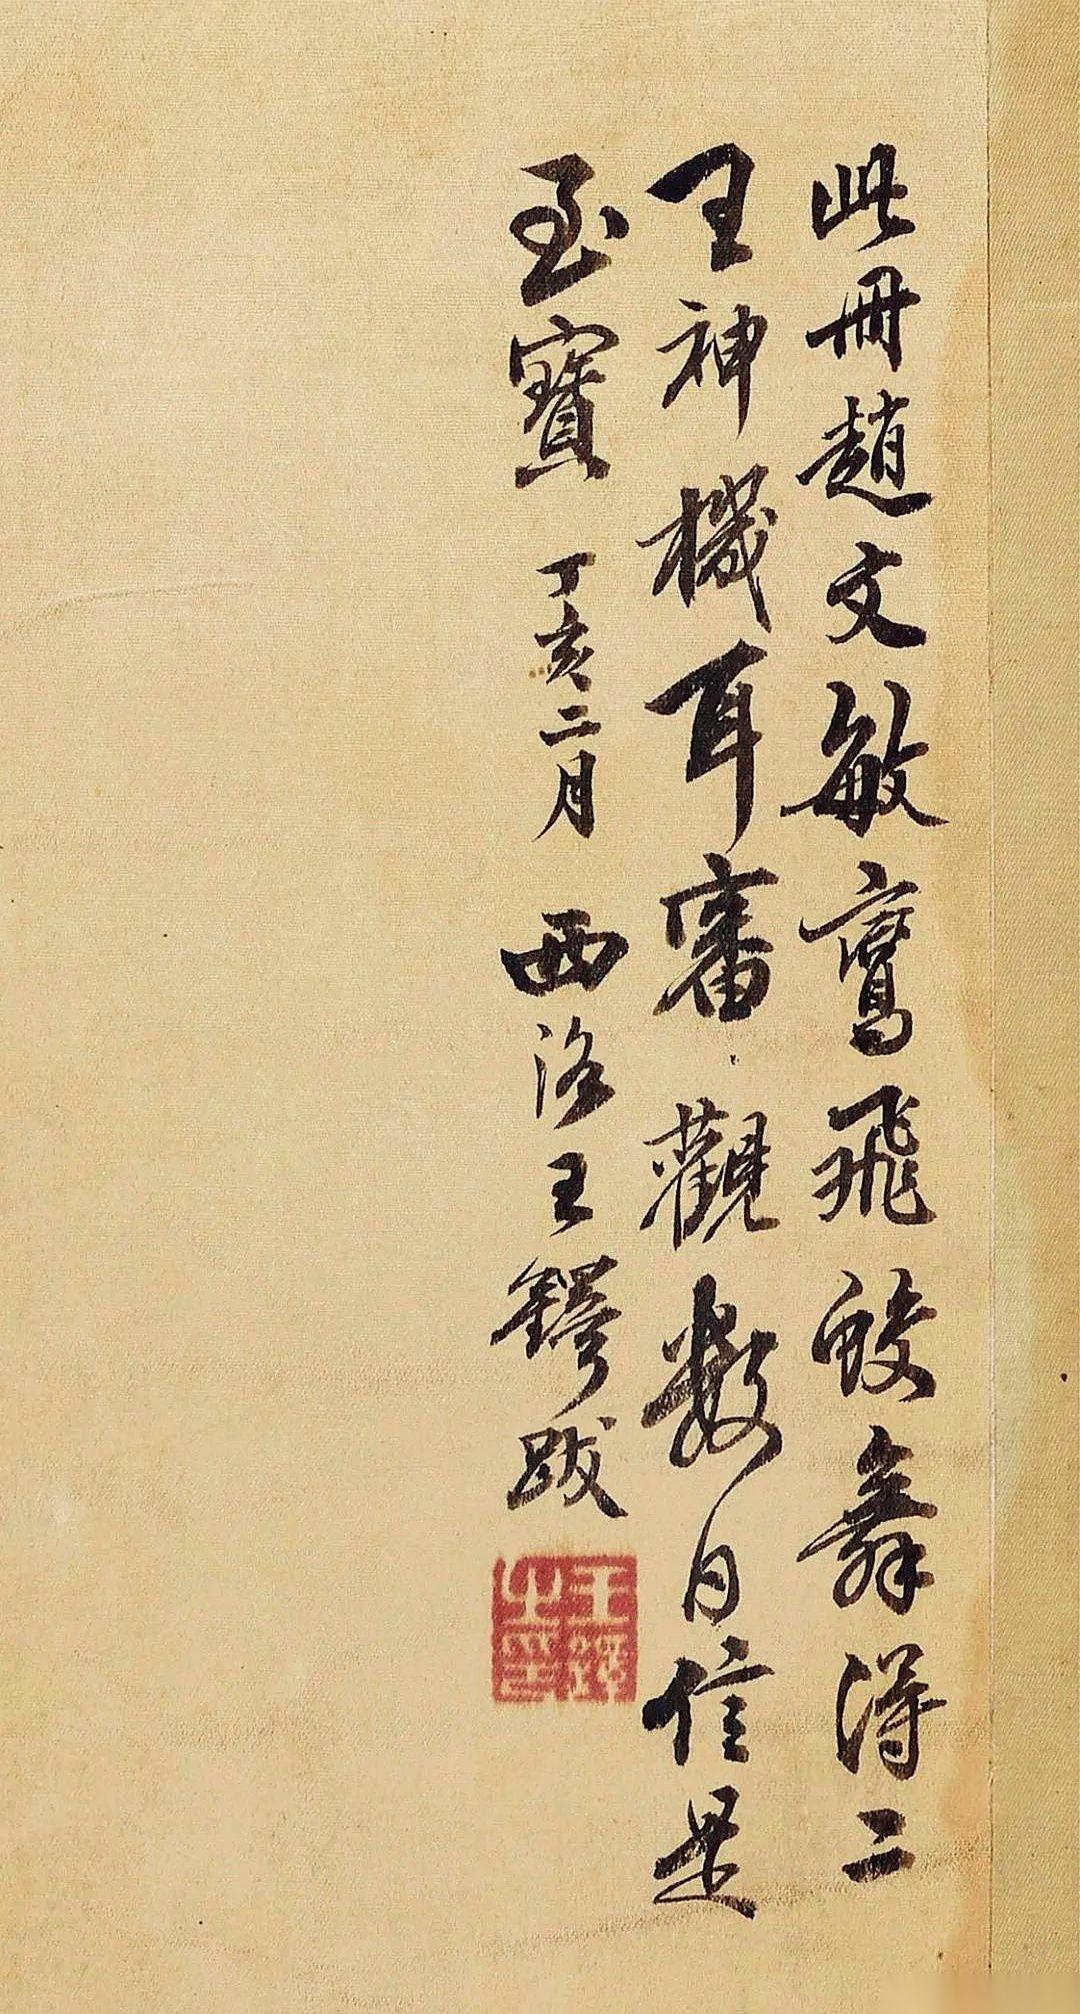 此冊趙文敏鸞飛蛟舞得二
王神機耳審觀數日信是
至寶 丁亥二月 西洛王鐸跋
王鐸之印